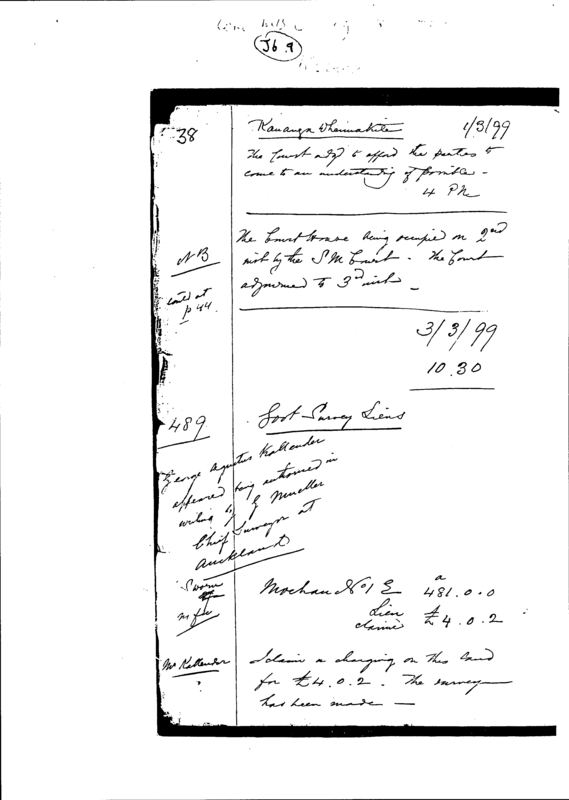 Jb 9
38
Kauanga Whenuakite 1/3/99
The Court adjd to afford the parties to
come to an understanding if possible -
4 PM
NB
contd at
p 44.
The Court House being occupied on 2nd
inst by the S M Court. The Court
adjourned to 3rd inst -
3/3/99
10.30
489
Govt Survey Liens
George Agustus Kallender
appeared being authorised in
writing by G Mueller
Chief Surveyor at
Auckland
Sworn
Moehau No 1 E a 481.0.0
Lien
claimed £4.0.2
Mr Kallender
I claim a charging on this land
for £4.0.2. The survey
has been made —